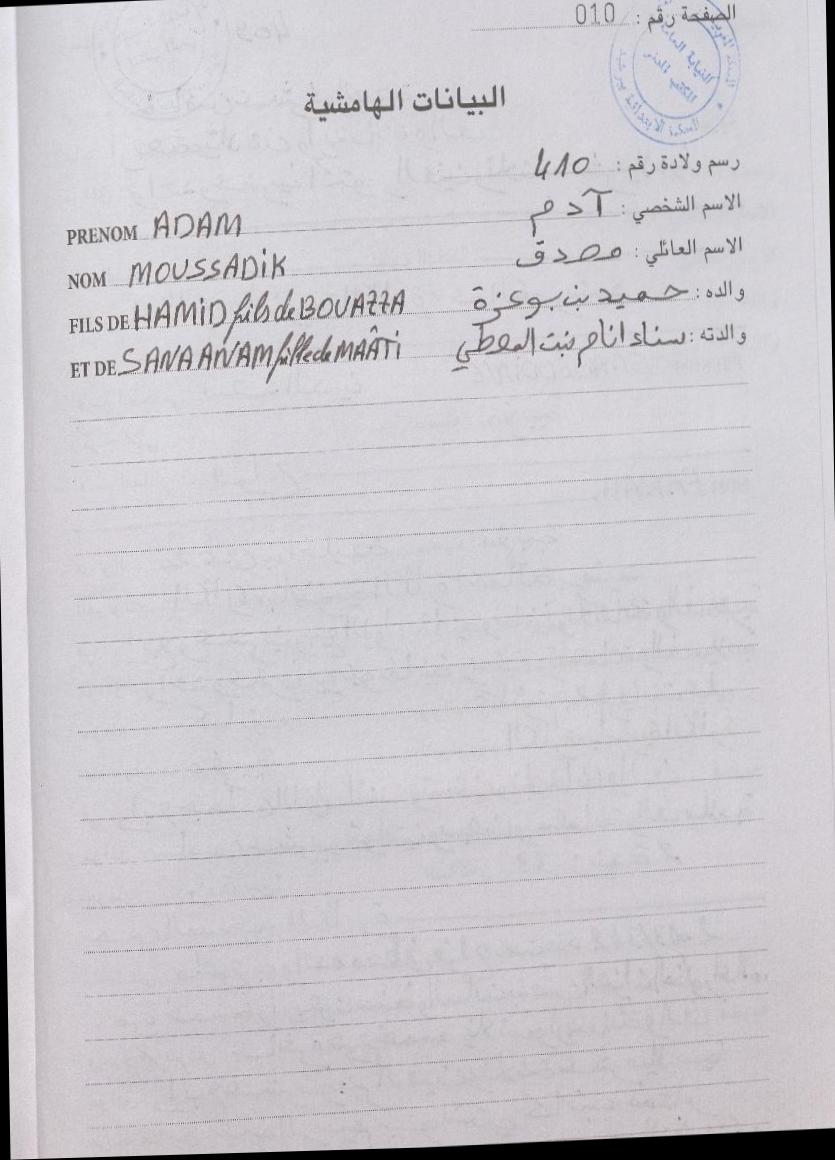 الصفحة رقم : 010
البيانات الهامشية
رسم ولادة رقم : 410
الاسم الشخصي : آدم
PRENOM ADAM
الاسم العائلي : مصدق
NOM MOUSSADIK
والده : حميد بن بوعزة
FILS DE HAMID fils de BOUAZZA
والدته : سناء انام بنت المعطي
ET DE SANA ANAM fille de MAÂTI